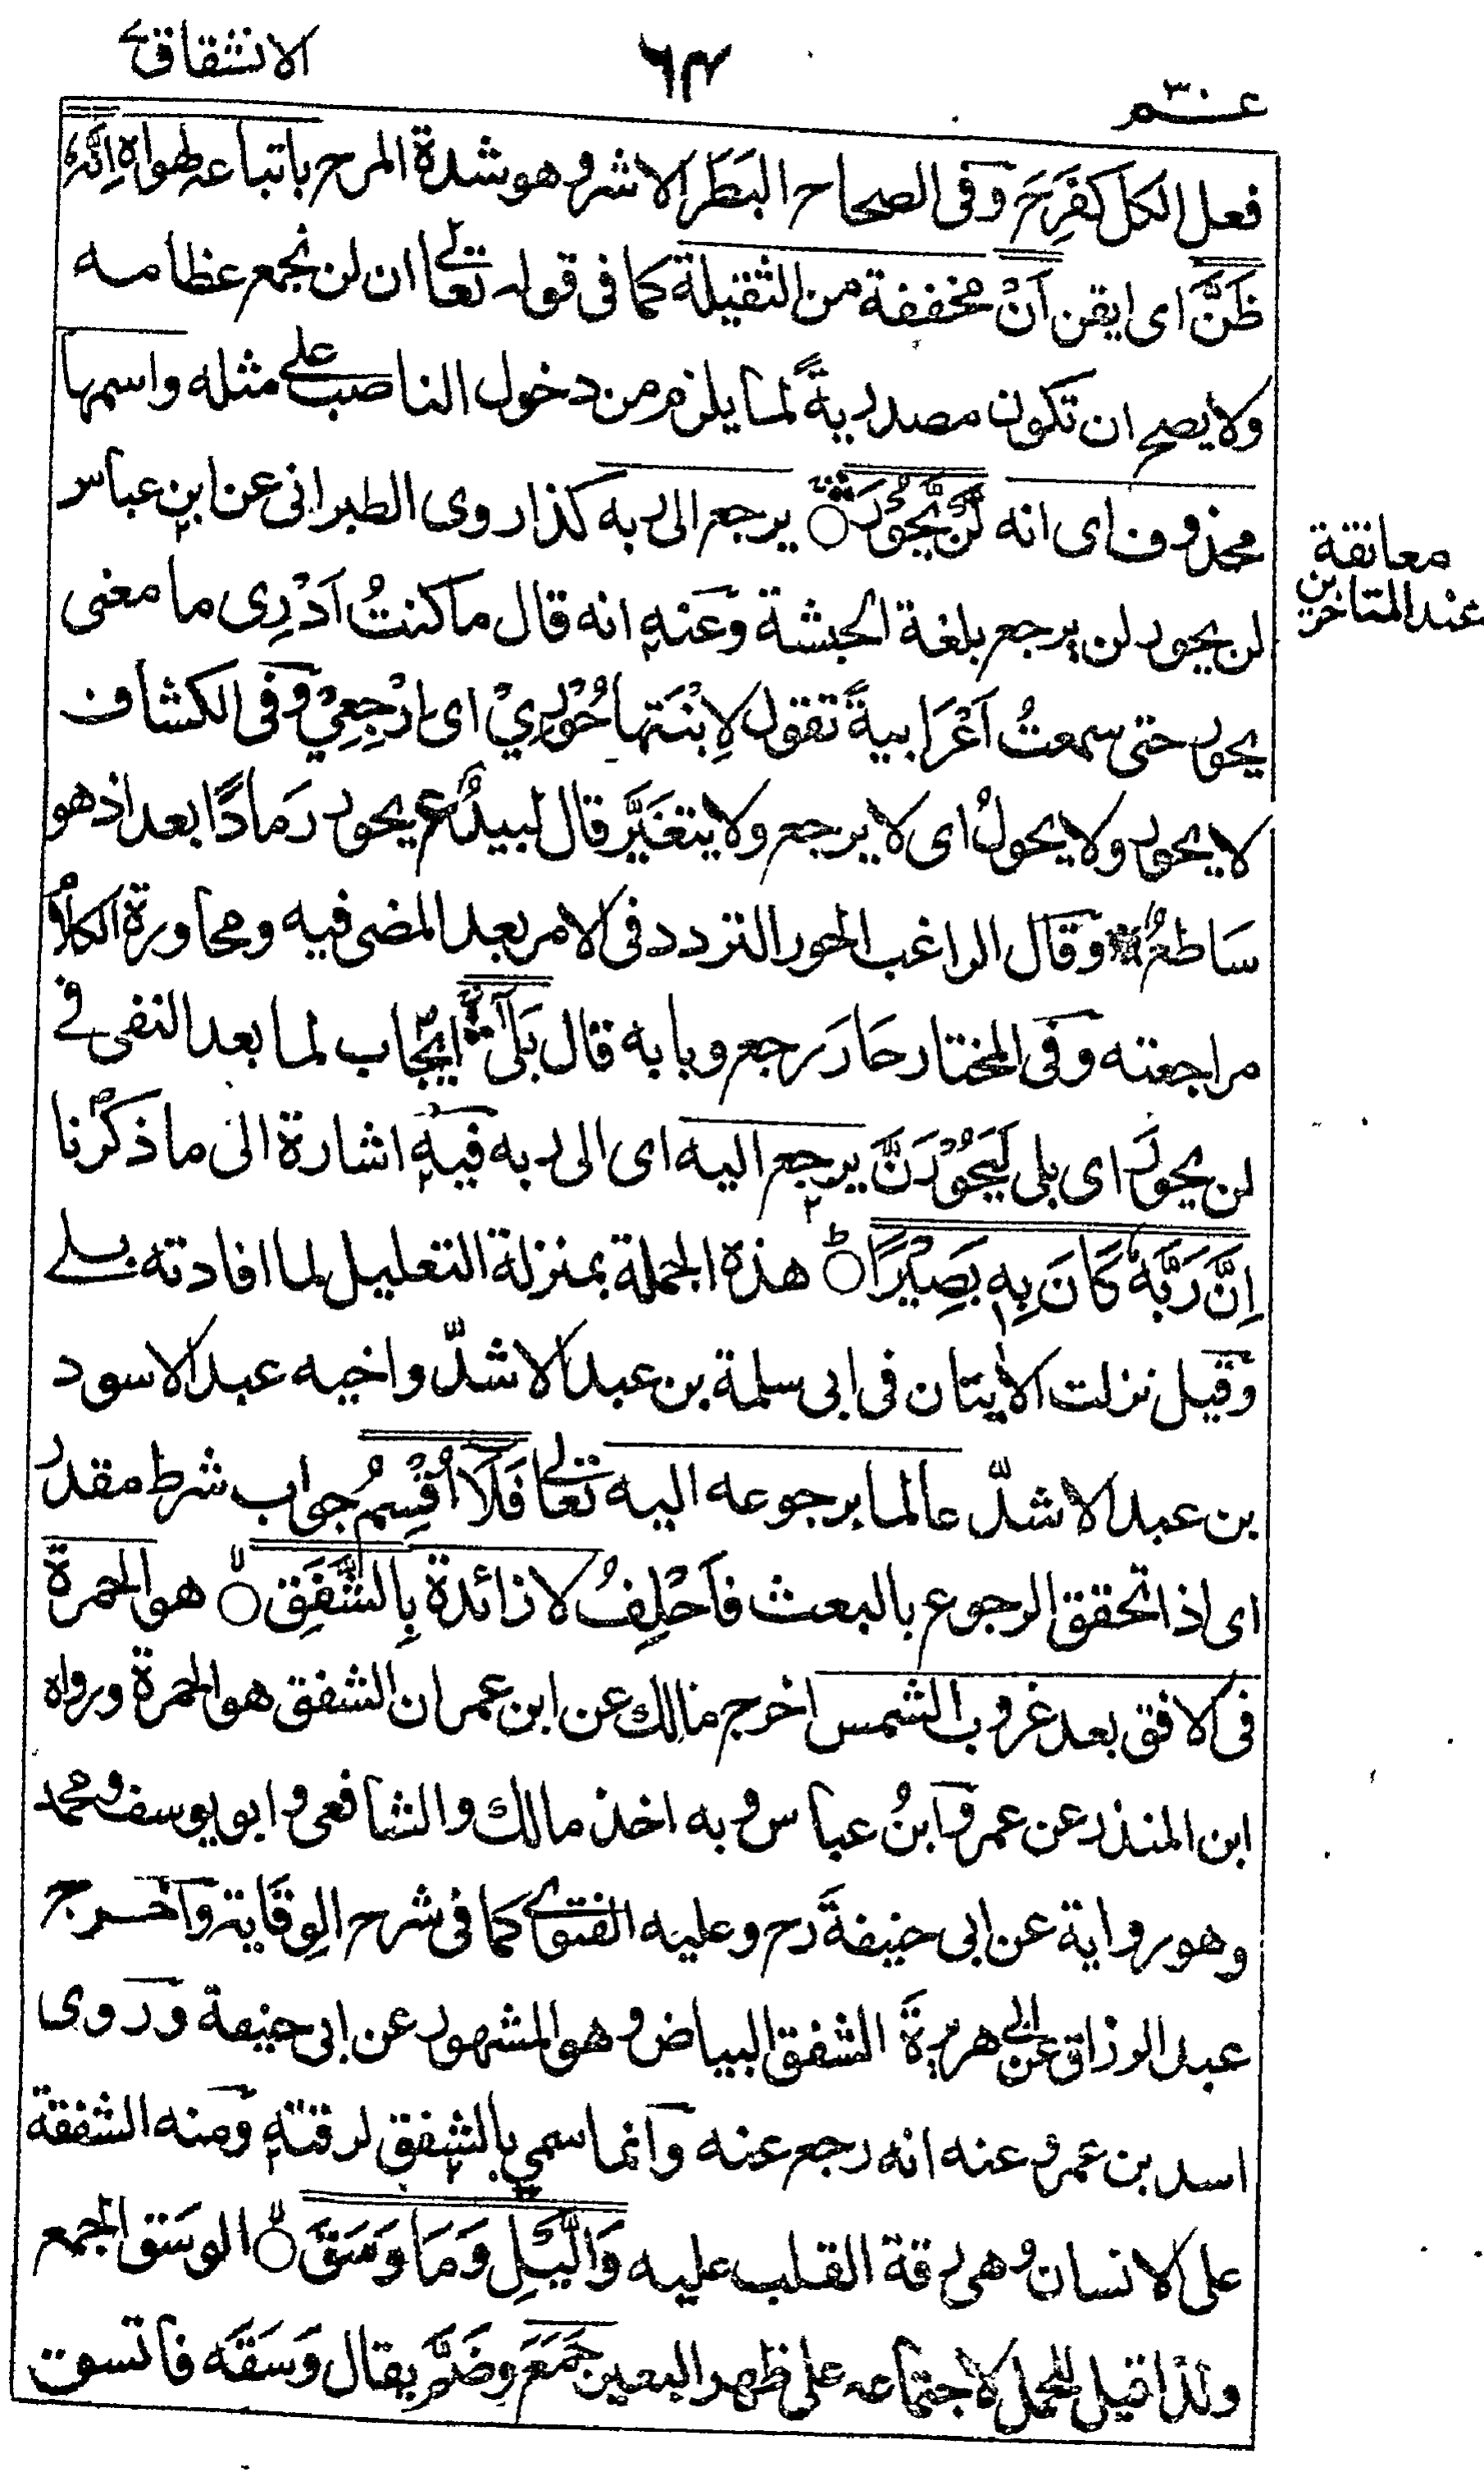 عم
٦٤
الانشقاق
فعل الكل كفَرِحَ وفى الصحاح البَطَر الاشر وهو شدة المرح باتباعه لهواه اِنَّهٗ
ظَنَّ اى ايقن اَنْ مخففة من الثقيلة كما فى قوله تعالى ان لن نجمع عظامه
ولا يصح ان تكون مصدريةً لما يلزم من دخول الناصب على مثله واسمها
محذوف اى انه لَنْ يَّحُوْرَ يرجع الى ربه كذا روى الطبرانى عن ابن عباس
لن يحور لن يرجع بلغة الحبشة وعنه انه قال ما كنتُ اَدْرِى ما معنى
يحور حتى سمعتُ اَعْرَابيةً تقول لِابْنَتها حُوْرِيْ اى اِرْجِعِيْ وفى الكشاف
لا يحور ولا يحولُ اى لا يرجع ولا يتغيَّر قال لبيدٌ ع يحور رَمادًا بعد اذ هو
سَاطعُ وقال الراغب الحور التردد فى الامر بعد المضى فيه ومحاورة الكلام
مراجعته وفى المختار حَارَ رجع وبابه قال بَلٰى ايجاب لما بعد النفى فى
لن يحورَ اى بلى لَيَحُوْرَنَّ يرجع اليه اى الى ربه فيه اشارة الى ما ذكرنا
اِنَّ رَبَّهٗ كَانَ بِهٖ بَصِيْرًا هذه الجملة بمنزلة التعليل لما افادته بلى
وقيل نزلت الايتان فى ابى سلمة بن عبد الاشدّ واخيه عبد الاسود
بن عبد الاشدّ عالما برجوعه اليه تعالى فَلَآ اُقْسِمُ جواب شرط مقدر
اى اذا تحقق الرجوع بالبعث فاَحْلِفُ لا زائدة بِالشَّفَقِ هو الحمرة
فى الافق بعد غروب الشمس اخرج مالك عن ابن عمر ان الشفق هو الحمرة ورواه
ابن المنذر عن عمر وابنُ عباس وبه اخذ مالك والشافعى وابو يوسف ومحمد
وهو رواية عن ابى حنيفةَ رح وعليه الفتوى كما فى شرح الوِقَاية واخرج
عبد الرزاق عن ابى هريرةَ الشفق البياض وهو المشهور عن ابى حنيفة وروى
اسد بن عمرو عنه انه رجع عنه وانما سمي بالشفق لرقته ومنه الشفقة
على الانسان وهى رقة القلب عليه وَالَّيْلِ وَمَا وَسَقَ الوسَق الجمع
ولذا قيل للحمل لاجتماعه على ظهر البعير جَمَعَ وضَمَّ يقال وَسَقَه فاتسق
معانقة
عند المتاخرين